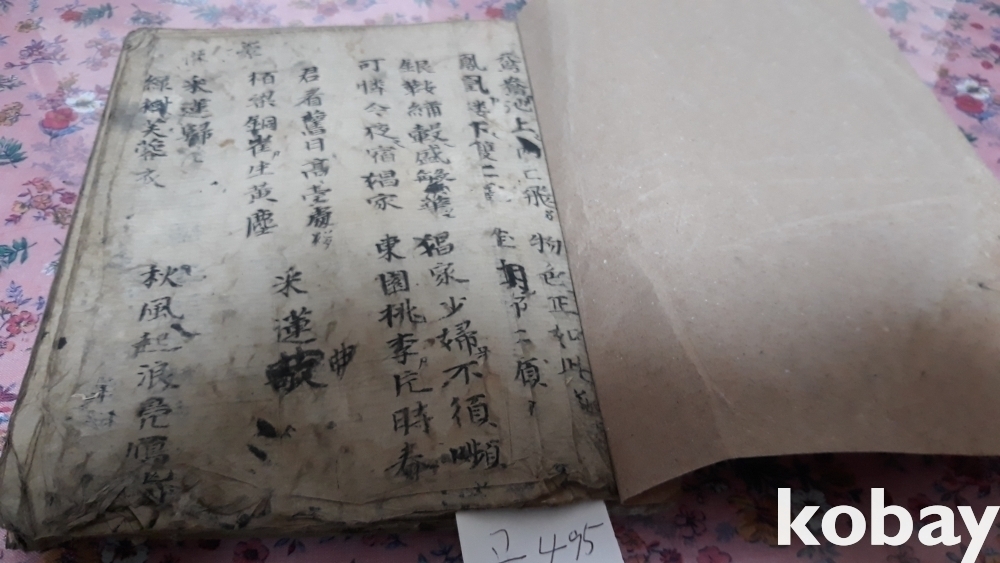 鴦池上兩二飛 物色正如此
鳳凰樓下雙二
銀鞍繡轂盛繁華 猖家少婦不須嚬
可憐今夜宿猖家 東園桃李片時春
君看舊日高臺處
采蓮曲
栢梁銅雀生黃塵
采蓮歸
綠樹芙蓉衣 秋風起浪鳧鴈
고 495
kobay